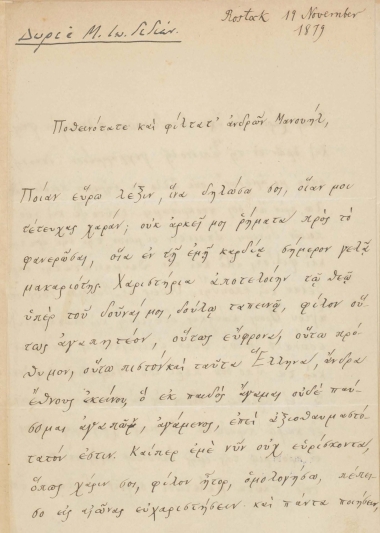 Δωρεὰ Μ. Ἰω. Γεδεών.
Rostock 19 November
1879
Ποθεινότατε καὶ φίλτατ' ἀνδρῶν Μανουήλ,
Ποίαν εὕρω λέξιν, ἵνα δηλώσω σοι, οἵαν μοι
τέτευχας χαράν; οὐκ ἀρκεῖ μοι ῥήματα πρὸς τὸ
φανερῶσαι, οἵα ἐν τῇ ἐμῇ καρδίᾳ σήμερον γελᾷ
μακαριότης. Χαριστήρια ἀποτελοίην τῷ θεῷ
ὑπὲρ τοῦ δοῦναί μοι, δούλῳ ταπεινῷ, φίλον οὕ-
τως ἀγαπητέον, οὕτως εὔφρονα, οὕτω πρό-
θυμον, οὕτω πιστὸν καὶ ταῦτα Ἕλληνα, ἄνδρα
ἔθνους ἐκείνου, ὃ ἐκ παιδὸς ἄγαμαι οὐδὲ παύ-
σομαι ἀγαπῶν, ἀγάμενος, ἐπεὶ ἀξιοθαυμαστό-
τατόν ἐστιν. Καίπερ ἐμὲ νῦν οὐχ εὑρίσκοντα,
ὅπως χάριν σοι, φίλον ἦτορ, ὁμολογήσω, πέπει-
σο εἰς αἰῶνας εὐχαριστήσειν καὶ πάντα ποιήσειν,